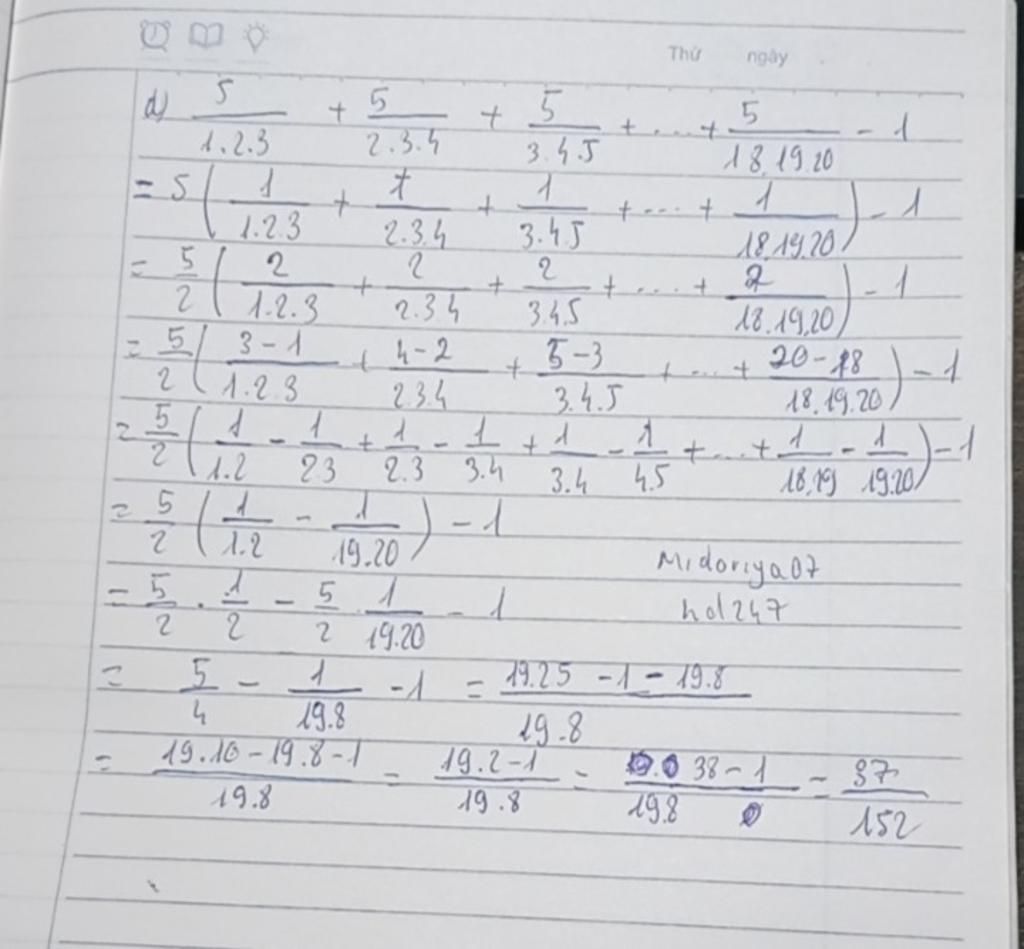 Thứ ngày
d) 5/1.2.3 + 5/2.3.4 + 5/3.4.5 + ... + 5/18.19.20 - 1
= 5 ( 1/1.2.3 + 1/2.3.4 + 1/3.4.5 + ... + 1/18.19.20 ) - 1
= 5/2 ( 2/1.2.3 + 2/2.3.4 + 2/3.4.5 + ... + 2/18.19.20 ) - 1
= 5/2 ( 3-1/1.2.3 + 4-2/2.3.4 + 5-3/3.4.5 + ... + 20-18/18.19.20 ) - 1
= 5/2 ( 1/1.2 - 1/2.3 + 1/2.3 - 1/3.4 + 1/3.4 - 1/4.5 + ... + 1/18.19 - 1/19.20 ) - 1
= 5/2 ( 1/1.2 - 1/19.20 ) - 1
Midoriya07
= 5/2 . 1/2 - 5/2 . 1/19.20 - 1
hd247
= 5/4 - 1/19.8 - 1 = 19.25 - 1 - 19.8/19.8
= 19.10 - 19.8 - 1/19.8 = 19.2 - 1/19.8 = 38 - 1/19.8 = 37/152